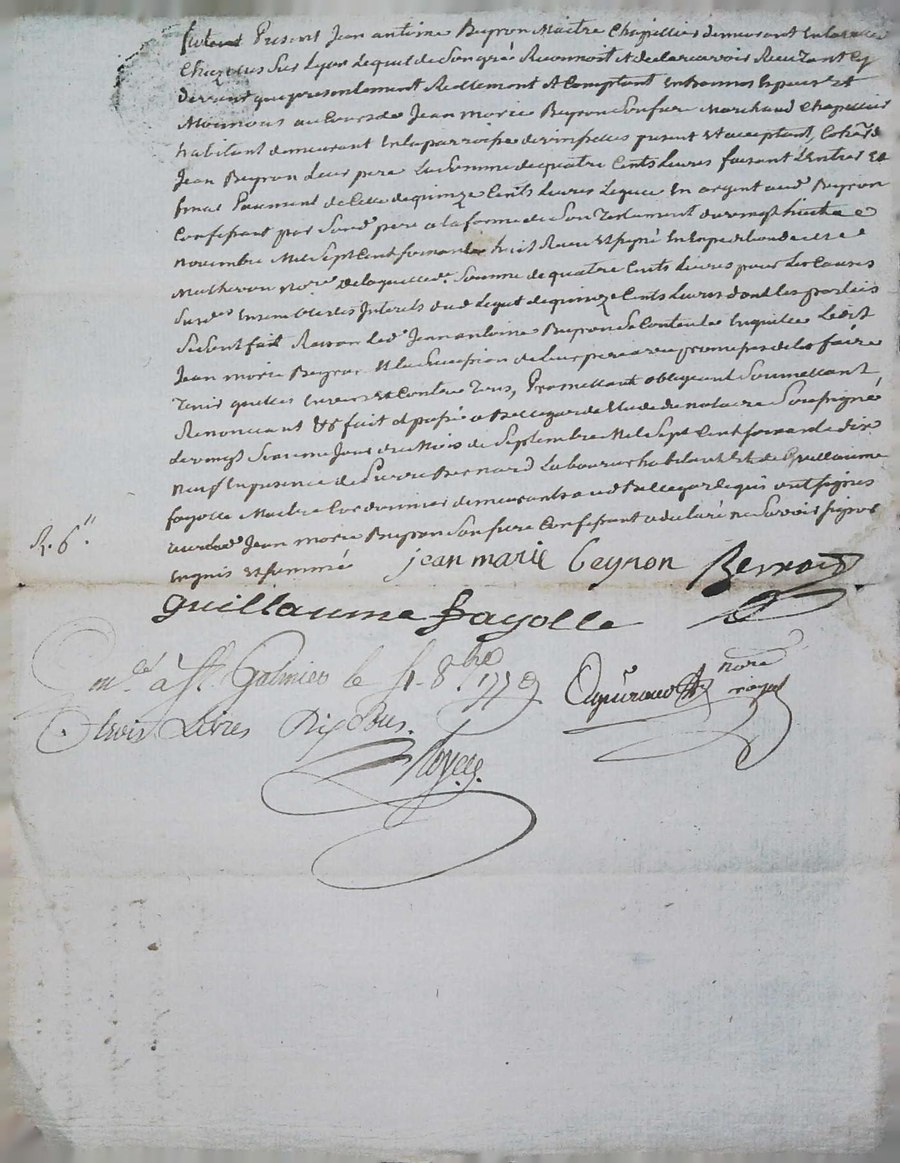 fut present Jean antoine Beyron Maitre Chapellier demeurant En la
Chazelles Sus Lyon lequel de Son gré Reconnoit et declare avoir Recu Tant Cy
devant que presentement Reellement et Comptant En bonnes Especes et
Monnoies au Cours de Jean marie Beyron Son frere Marchand Chapellier
habitant demeurant En la parroisse de present Et acceptant,
Jean Beyron leur pere La Somme de quatre Cents Livres faisant L'entier Et
final Paiment de Celle de quinze Cents Livres leguée En argent aud. Beyron
Confessant par Sond. pere a la forme de Son Testament du vingt huit
novembre Mil Sept Cent soixante huit Recu Et signé
Matheron Nore. de laquelle d. Somme de quatre Cents Livres pour les Causes
Susd. Ensemble des Interets dud. Legat de quinze Cents Livres dont les parties
Se Sont fait Raison Led. Jean antoine Beyron Se Contente En quitte Led.
Jean marie Beyron Et la Succession de leur pere avec promesses de les faire
Tenir quittes Envers Et Contre Tous, Promettant obligeant Soumettant
Renoncant &c fait et passé a Bellegarde Etude de notaire Soussigné
le vingt Sixieme Jour du Mois de Septembre Mil Sept Cent soixante dix
neuf En presence de Pierre Bernard Laboureur habitant Et de Guillaume
fayolle Maitre Cordonnier demeurants aud. Bellegarde qui ont signés
avec led. Jean marie Beyron Son frere Confessant a declaré ne Savoir signer
Enquis Et sommé
R. 6"
jean marie beyron Bernard
guillaume fayolle
à St. Galmier le 8bre 1779
trois Livres Dix Sous.
nore
royal